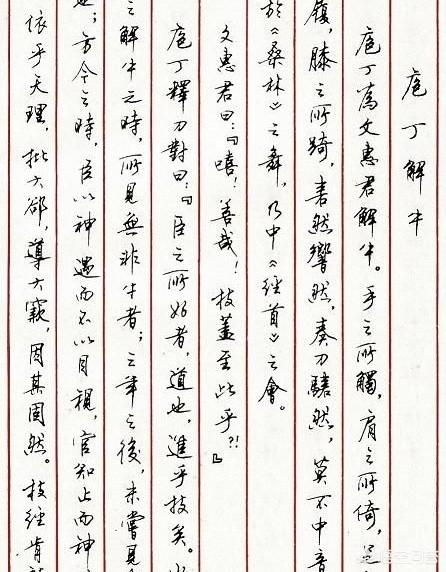 庖丁解牛
庖丁爲文惠君解牛。手之所觸，肩之所倚，足
履，膝之所踦，砉然響然，奏刀騞然，莫不中音
於《桑林》之舞，乃中《經首》之會。
文惠君曰：『嘻！善哉！技蓋至此乎？！』
庖丁釋刀對曰：『臣之所好者，道也，進乎技矣。
之解牛之時，所見無非牛者；三年之後，未嘗見
也；方今之時，臣以神遇而不以目視，官知止而神
依乎天理，批大郤，導大窾，因其固然。技經肯